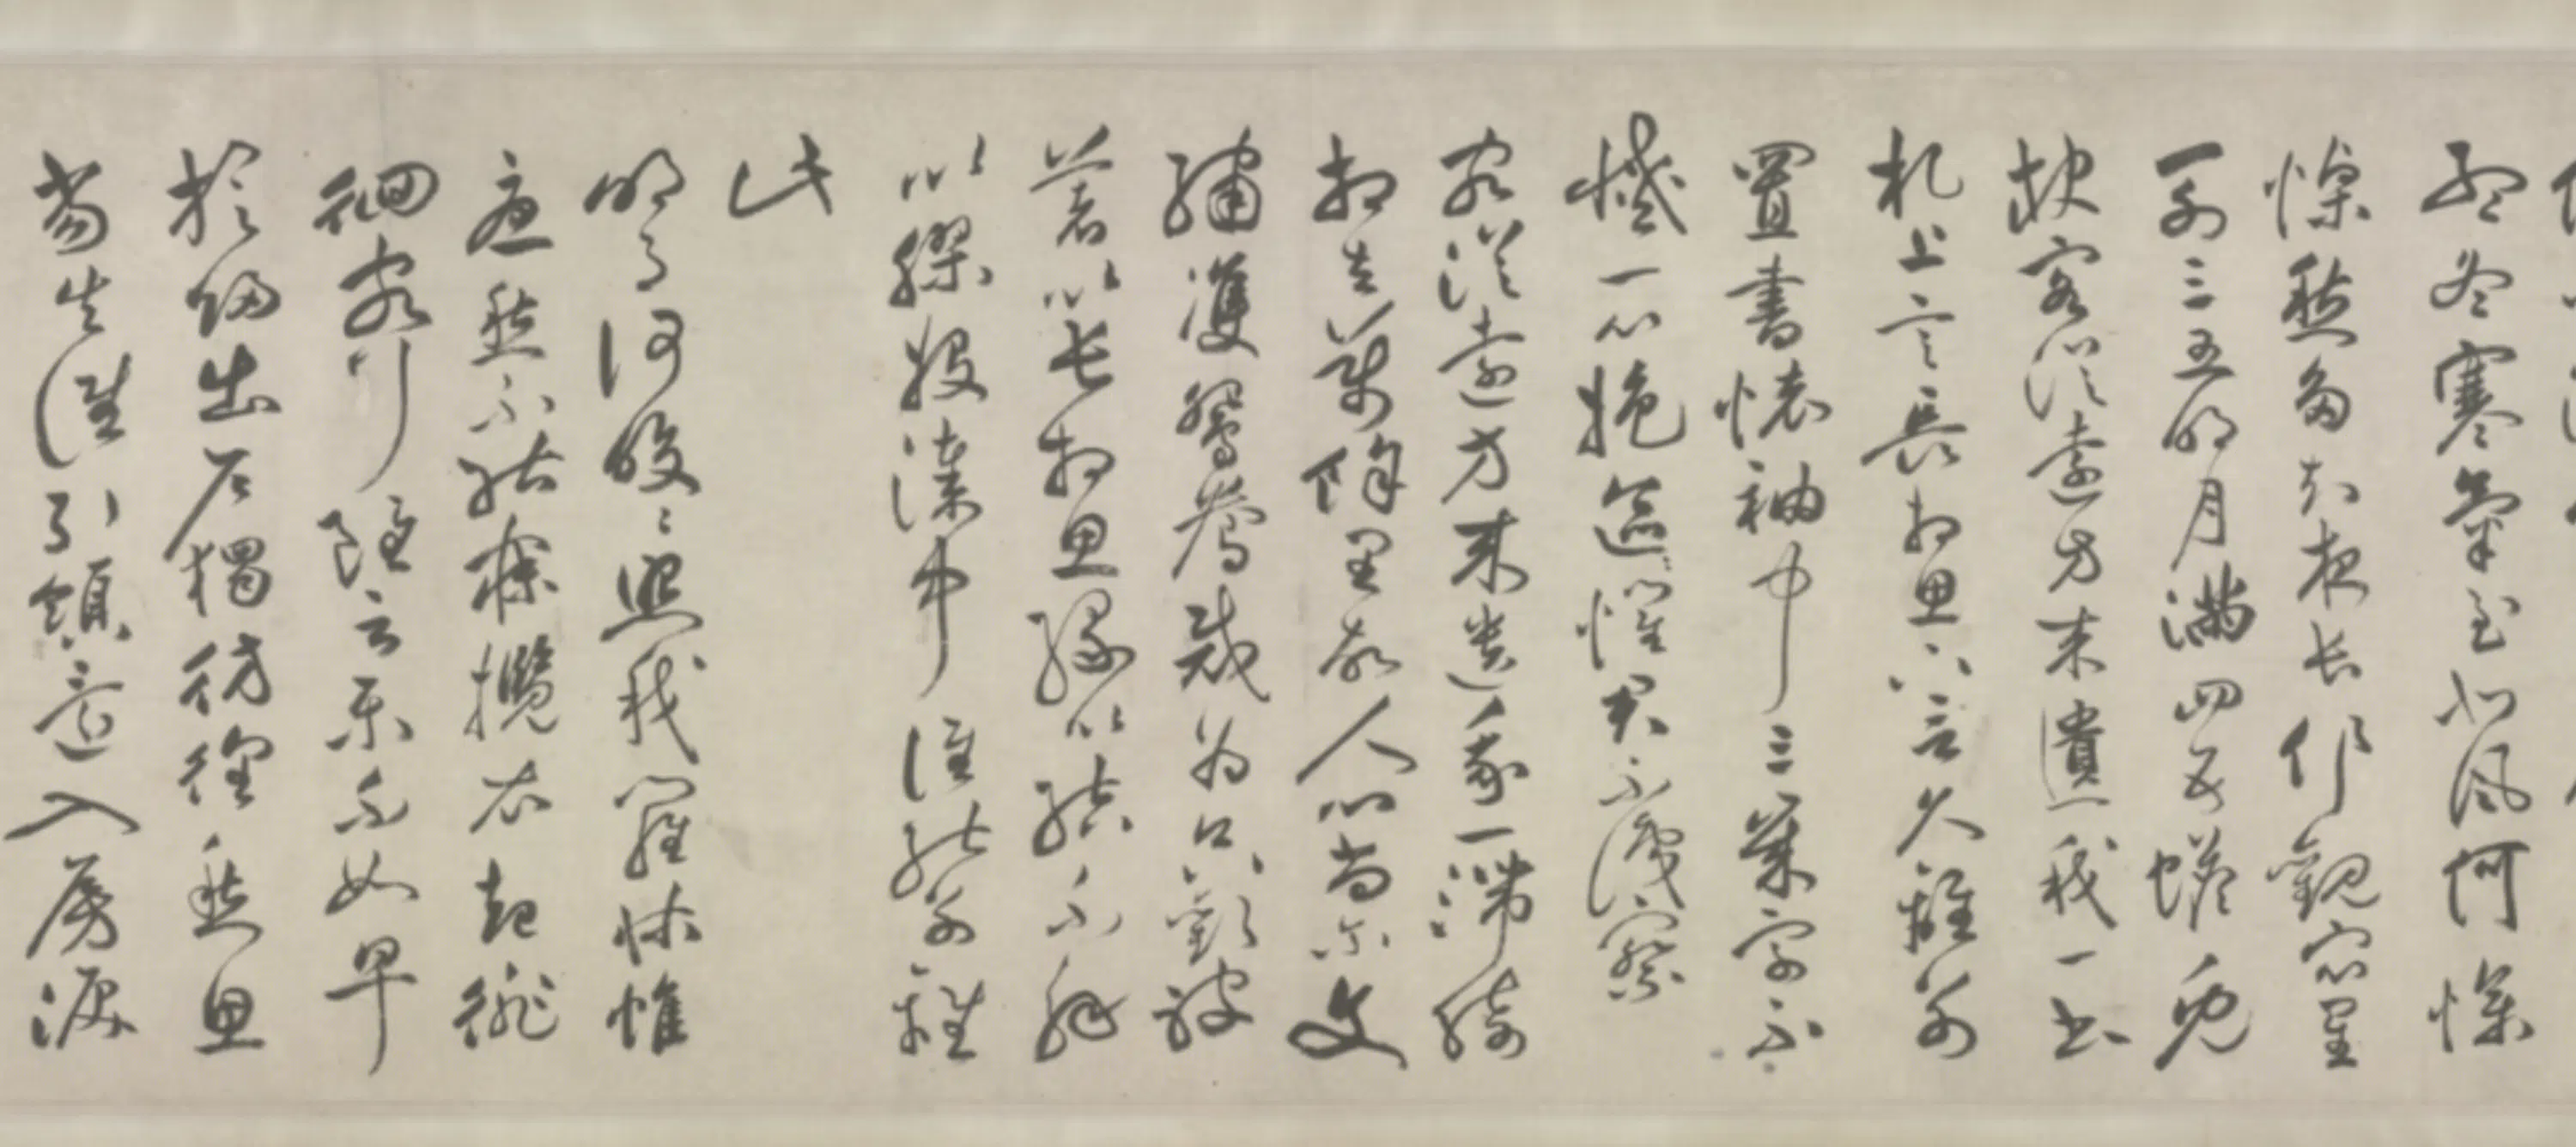 孟冬寒氣至北風何慘
慄愁多知夜長仰觀眾星
列三五明月滿四五蟾兔
缺客從遠方來遺我一書
札上言長相思下言久離別
置書懷袖中三歲字不
滅一心抱區區懼君不識察
客從遠方來遺我一端綺
相去萬餘里故人心尚爾文
繡雙鴛鴦裁為合歡被
著以長相思緣以結不解
以膠投漆中誰能別離
此
明月何皎皎照我羅牀幃
憂愁不能寐攬衣起徘
徊客行雖云樂不如早
旋歸出戶獨彷徨愁思
當告誰引領還入房淚